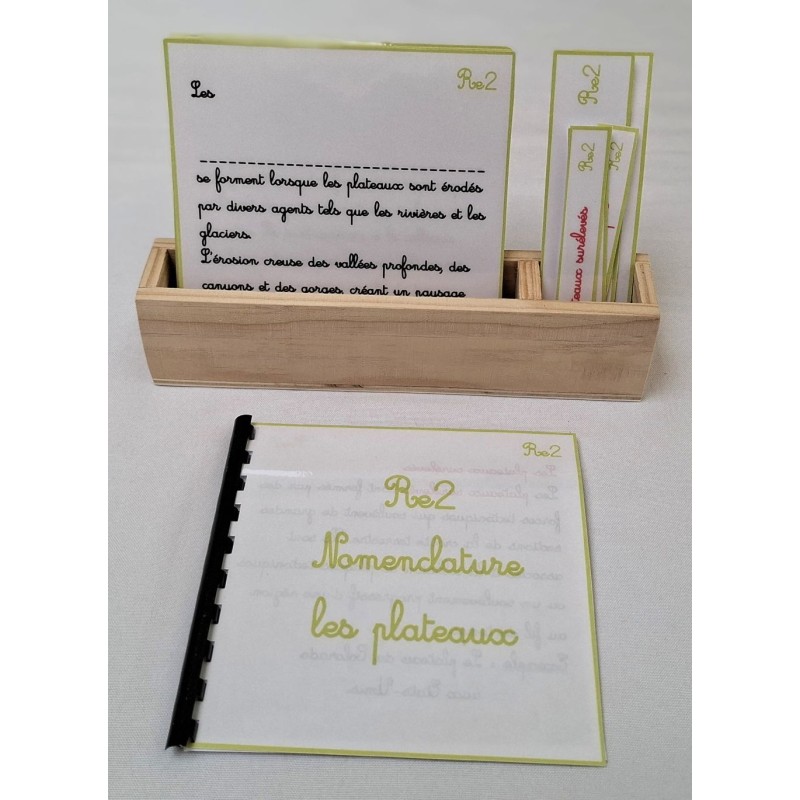 Re2
Les
se forment lorsque les plateaux sont érodés
par divers agents tels que les rivières et les
glaciers.
L'érosion creuse des vallées profondes, des
canyons et des gorges, créant un paysage
Re2
Re2
Re2
teaux surélevés
Re2
Re2
Nomenclature
les plateaux